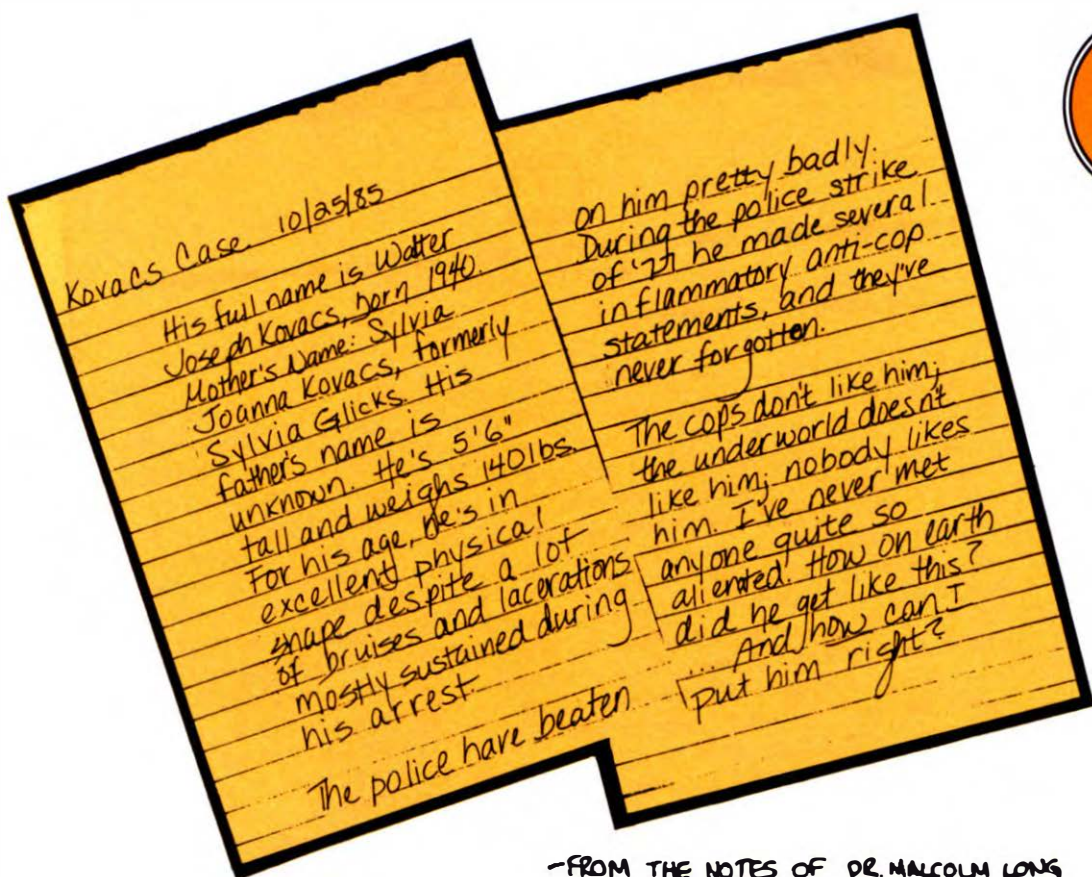 Kovacs Case. 10/25/85
His full name is Walter
Joseph Kovacs, born 1940.
Mother's Name: Sylvia
Joanna Kovacs, formerly
Sylvia Glicks. His
father's name is
unknown. He's 5'6"
tall and weighs 140lbs.
For his age, he's in
excellent physical
shape despite a lot
of bruises and lacerations
mostly sustained during
his arrest.
The police have beaten
on him pretty badly.
During the police strike
of '77 he made several
inflammatory anti-cop
statements, and they've
never forgotten.
The cops don't like him;
the underworld doesn't
like him; nobody likes
him. I've never met
anyone quite so
aliented. How on earth
did he get like this?
... And how can I
put him right?
-FROM THE NOTES OF DR. MALCOLM LONG